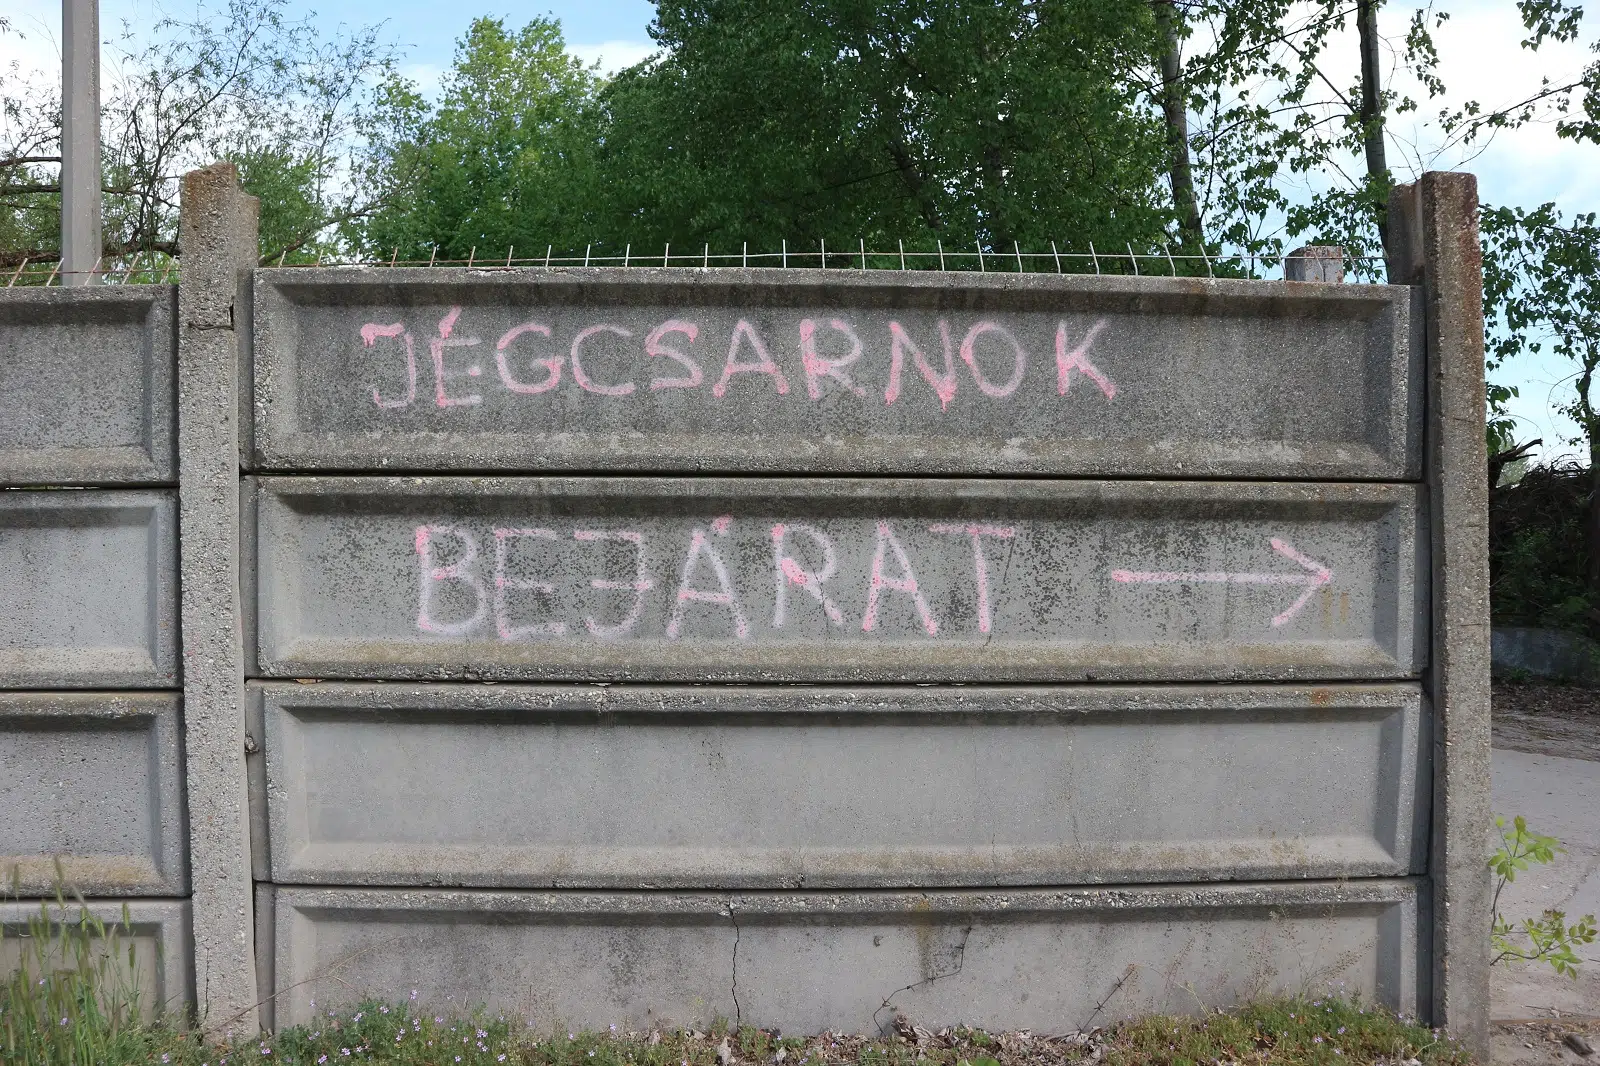 JÉGCSARNOK
BEJÁRAT →